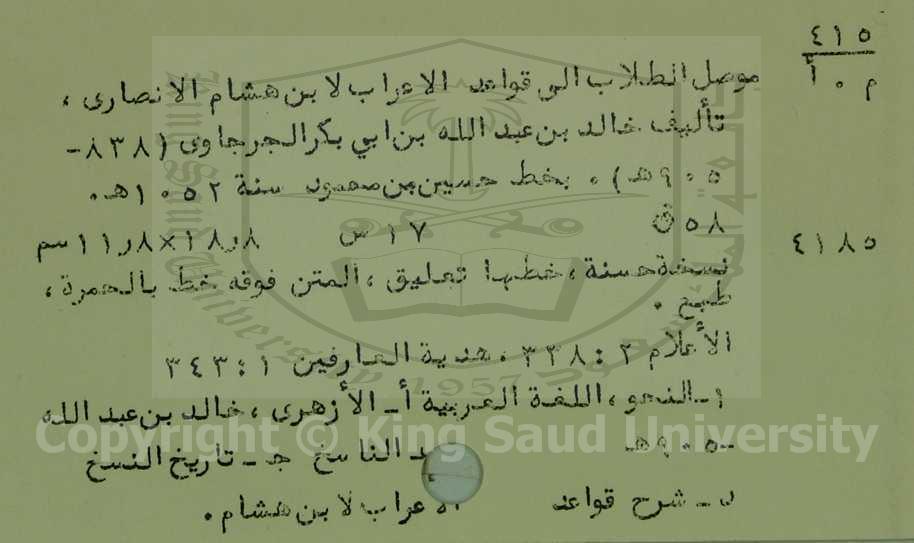 ٤١٥
م ٠ أ
موصل الطلاب الى قواعد الاعراب لابن هشام الانصارى ،
تأليف خالد بن عبد الله بن ابي بكر الجرجاوى (٨٣٨-
٩٠٥هـ) . بخط حسين بن محمود سنة ١٠٥٢هـ.
٥٨ق ١٧ س ١٨٫٨×١١٫٨سم
٤١٨٥
نسخة حسنة ، خطها تعليق ، المتن فوقه خط بالحمرة ،
طبع .
الأعلام ٢ : ٣٣٨ ، هدية العارفين ١ : ٣٤٣
١-النحو ، اللغة العربية أ- الأزهرى ، خالد بن عبد الله
-٩٠٥هـ الناسخ جـ - تاريخ النسخ
د - شرح قواعد الاعراب لابن هشام .
Copyright © King Saud University
1957